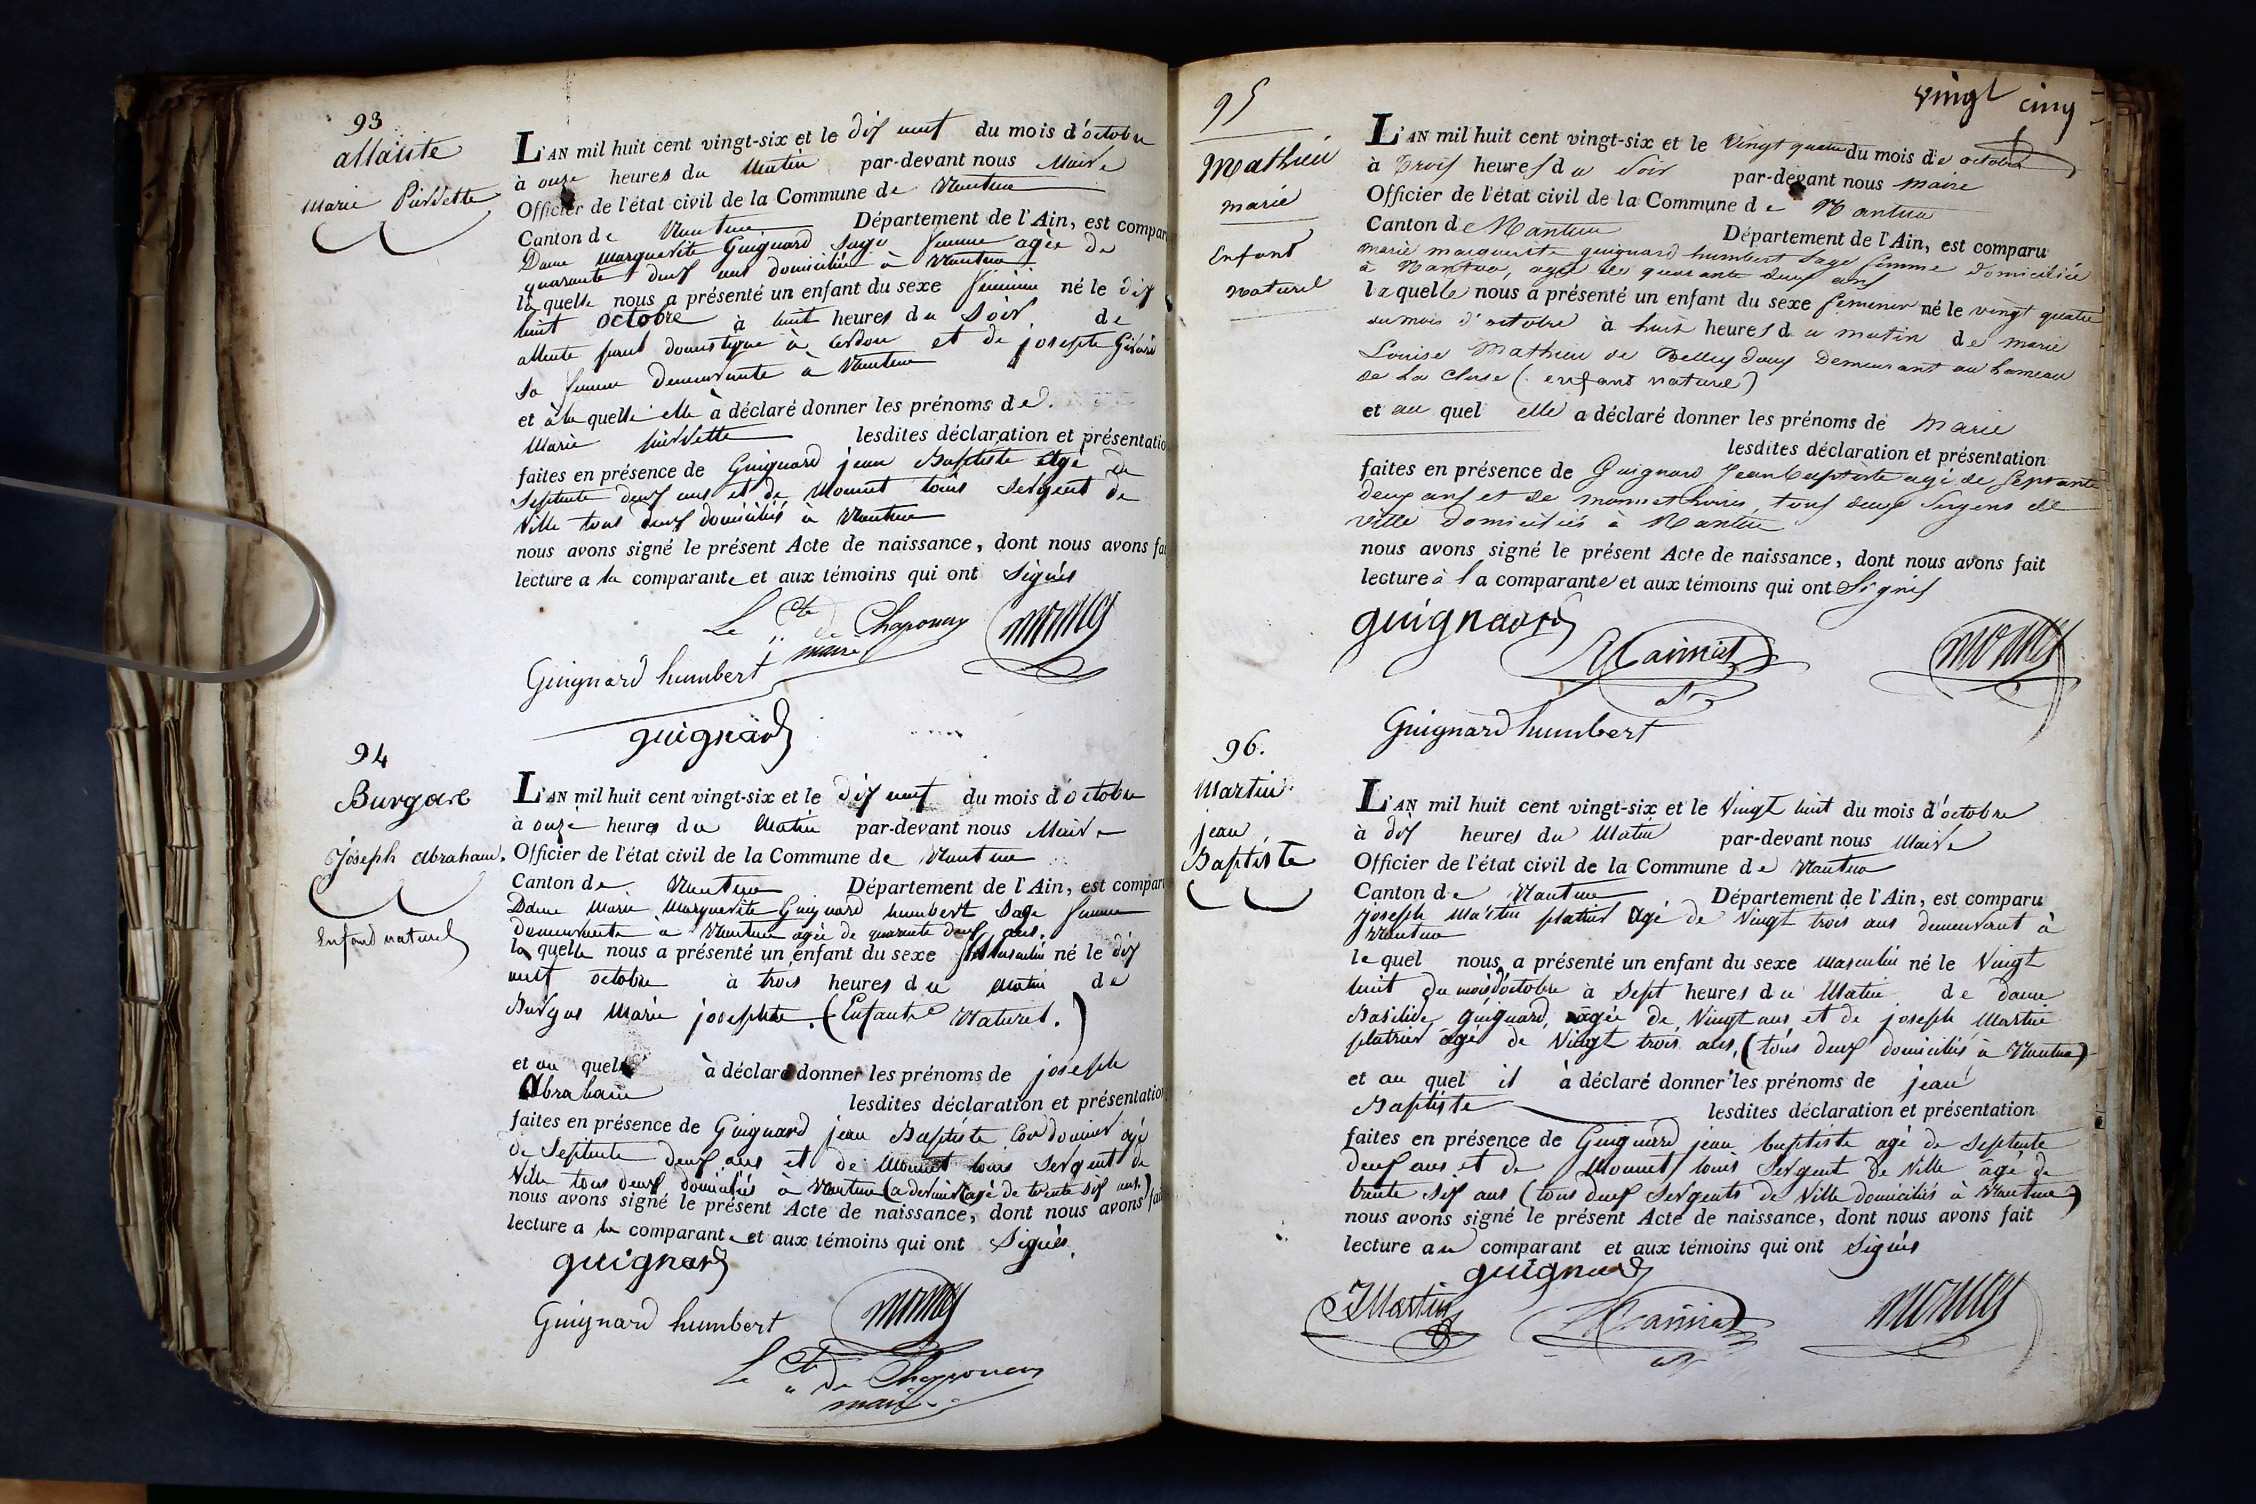 93
allante
Marie Pierrette
L'AN mil huit cent vingt-six et le dix neuf du mois d'octobre
à onze heures du Matin par-devant nous Maire
Officier de l'état civil de la Commune de Nantua
Canton de Nantua Département de l'Ain, est compar
Dame Marguerite Guignard Sage femme agée de
quarante deux ans domiciliée à Nantua
la quelle nous a présenté un enfant du sexe féminin né le dix
huit octobre à huit heures du Soir de
allante domestique à Cerdon et de josephte Girard
sa femme demeurante à Nantua
et à la quelle elle à déclaré donner les prénoms de
Marie pierrette lesdites déclaration et présentatio
faites en présence de Guignard jean Baptiste agé de
Septente deux ans et de Monnet louis Sergent de
Ville tous deux domiciliés à Nantua
nous avons signé le présent Acte de naissance, dont nous avons fai
lecture a la comparante et aux témoins qui ont Signés
Le Cte de Chaponay
maire
Guignard humbert
guignard
94
Burgod
Joseph Abraham.
Enfant naturel
L'AN mil huit cent vingt-six et le dix neuf du mois d'octobre
à onze heures du Matin par-devant nous Maire
Officier de l'état civil de la Commune de Nantua
Canton de Nantua Département de l'Ain, est compar
Dame Marie Marguerite Guignard humbert Sage femme
demeurante à Nantua agée de quarante deux ans.
la quelle nous a présenté un enfant du sexe Masculin né le dix
neuf octobre à trois heures du Matin de
Marie josephte. (Enfant Naturel.)
et au quel à déclaré donner les prénoms de joseph
Abraham lesdites déclaration et présentation
faites en présence de Guignard jean Baptiste Cordonnier agé
de Septente deux ans et de Monnet louis Sergent de
Ville tous deux domiciliés à Nantua (a dernier agé de trente six ans.)
nous avons signé le présent Acte de naissance, dont nous avons fai
lecture a la comparante et aux témoins qui ont Signés.
guignard
Guignard humbert
Le Cte de Chaponay
maire
vingt cinq
95
Mathieu
marie
Enfant
naturel
L'AN mil huit cent vingt-six et le vingt quatre du mois de octobre
à trois heures du Soir par-devant nous maire
Officier de l'état civil de la Commune de Nantua
Canton de Nantua Département de l'Ain, est comparu
marie marguerite guignard humbert Sage femme domiciliée
à Nantua, agée de quarante deux ans
la quelle nous a présenté un enfant du sexe feminin né le vingt quatre
du mois d'octobre à huit heures du matin de marie
Louise Mathieu de Belleydoux Demeurant au hameau
de La Cluse (enfant naturel)
et au quel elle a déclaré donner les prénoms de Marie
lesdites déclaration et présentation
faites en présence de Guignard Jean baptiste agé de Septante
deux ans et de monnet louis, tous deux Sergens de
ville domiciliés à Nantua
nous avons signé le présent Acte de naissance, dont nous avons fait
lecture à la comparante et aux témoins qui ont Signés
guignard
Guignard humbert
96.
Martin
jean
Baptiste
L'AN mil huit cent vingt-six et le Vingt huit du mois d'octobre
à dix heures du Matin par-devant nous Maire
Officier de l'état civil de la Commune de Nantua
Canton de Nantua Département de l'Ain, est comparu
joseph Martin platrier agé de Vingt trois ans demeurant à
Nantua
le quel nous a présenté un enfant du sexe masculin né le Vingt
huit du mois d'octobre à Sept heures du Matin de dame
Basilide guignard, agée de Vingt ans et de joseph Martin
platrier agé de Vingt trois ans, (tous deux domiciliés à Nantua)
et au quel il à déclaré donner les prénoms de jean
Baptiste lesdites déclaration et présentation
faites en présence de Guignard jean baptiste agé de Septente
deux ans et de Monnet louis Sergent de Ville agé de
trente six ans (tous deux Sergents de Ville domiciliés à Nantua)
nous avons signé le présent Acte de naissance, dont nous avons fait
lecture au comparant et aux témoins qui ont Signés
guignard
JMartin